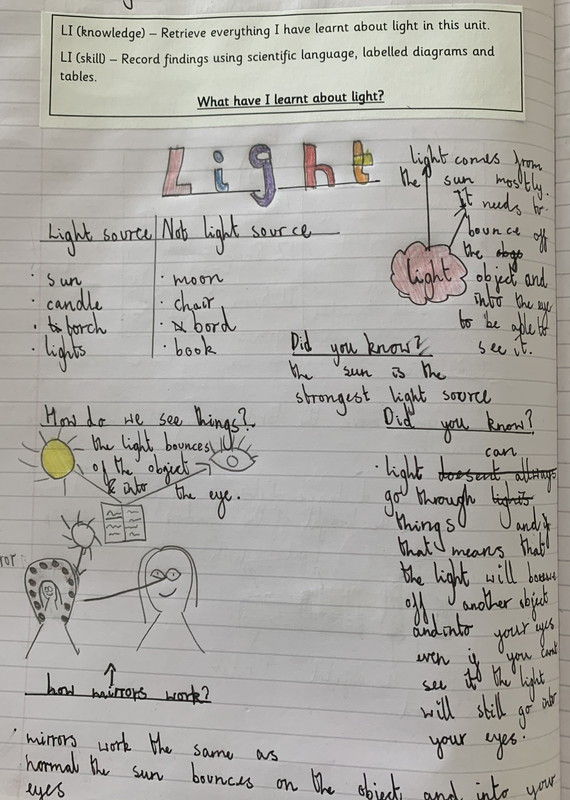 LI (knowledge) – Retrieve everything I have learnt about light in this unit.
LI (skill) – Record findings using scientific language, labelled diagrams and
tables.
What have I learnt about light?
Light
light comes from
the sun mostly.
It needs to
bounce off
the obge
object and
into the eye
to be able to
see it.
light
Light source Not light source
· sun · moon
· candle · chair
· torch · bord
· lights · book
Did you know?
the sun is the
strongest light source
How do we see things?
the light bounces
of the object
& into the eye.
Did you know?
can
· light doesent allways
go through lights
things and if
that means that
the light will bounce
off another object
and into your eyes
even if you cant
see it the light
will still go into
your eyes.
how mirrors work?
· mirrors work the same as
normal the sun bounces on the object and into your
eyes